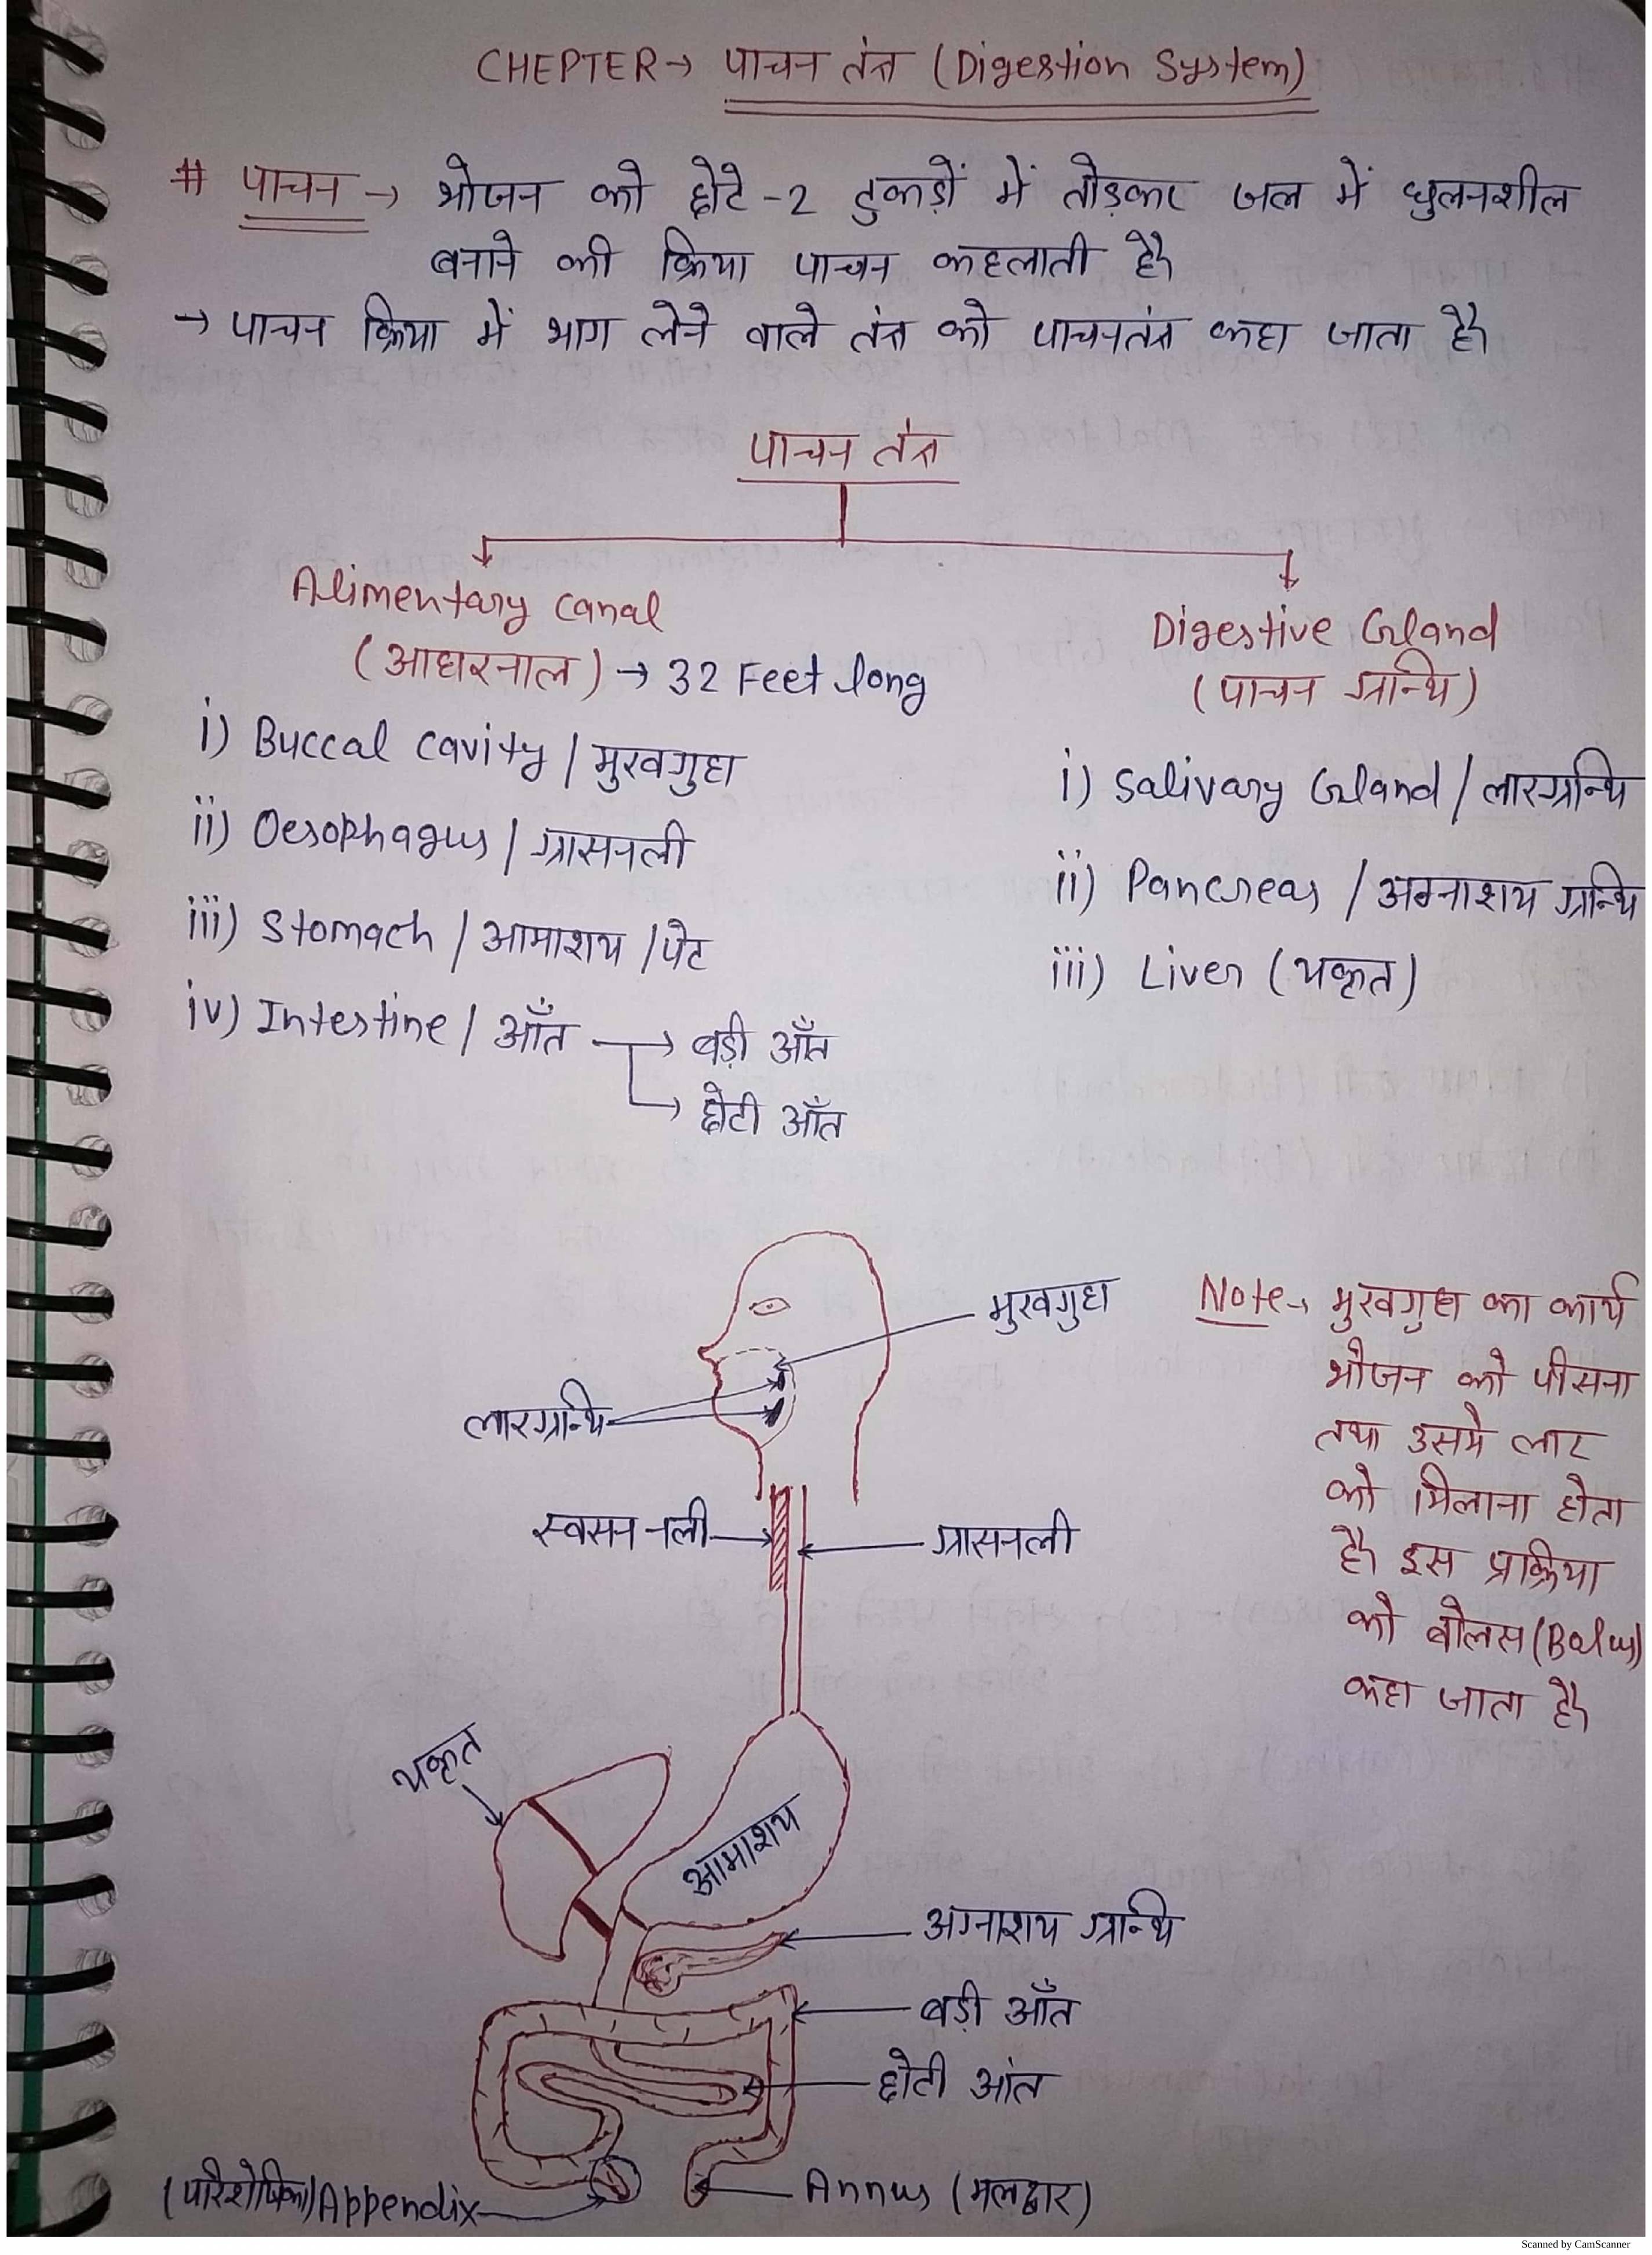 CHEPTER→ पाचन तंत्र (Digestion System)
# पाचन → भोजन को छोटे-2 टुकड़ों में तोड़कर जल में घुलनशील
बनाने की क्रिया पाचन कहलाती है
→ पाचन क्रिया में भाग लेने वाले तंत्र को पाचनतंत्र कहा जाता है
पाचन तंत्र
Alimentary Canal
(आहारनाल) → 32 Feet long
i) Buccal cavity / मुखगुहा
ii) Oesophagus / ग्रासनली
iii) Stomach / आमाशय / पेट
iv) Intestine / आँत → बड़ी आँत
→ छोटी आँत
Digestive Gland
(पाचन ग्रन्थि)
i) Salivary Gland / लारग्रन्थि
ii) Pancreas / अग्नाशय ग्रन्थि
iii) Liver (यकृत)
मुखगुहा
लारग्रन्थि
स्वसन नली
ग्रासनली
Note→ मुखगुहा का कार्य
भोजन को पीसना
तथा उसमे लार
को मिलाना होता
है इस प्रक्रिया
को बोलस (Bolus)
कहा जाता है
यकृत
आमाशय
अग्नाशय ग्रन्थि
बड़ी आँत
छोटी आंत
(परिशेषिका) Appendix
Annus (मलद्वार)
Scanned by CamScanner